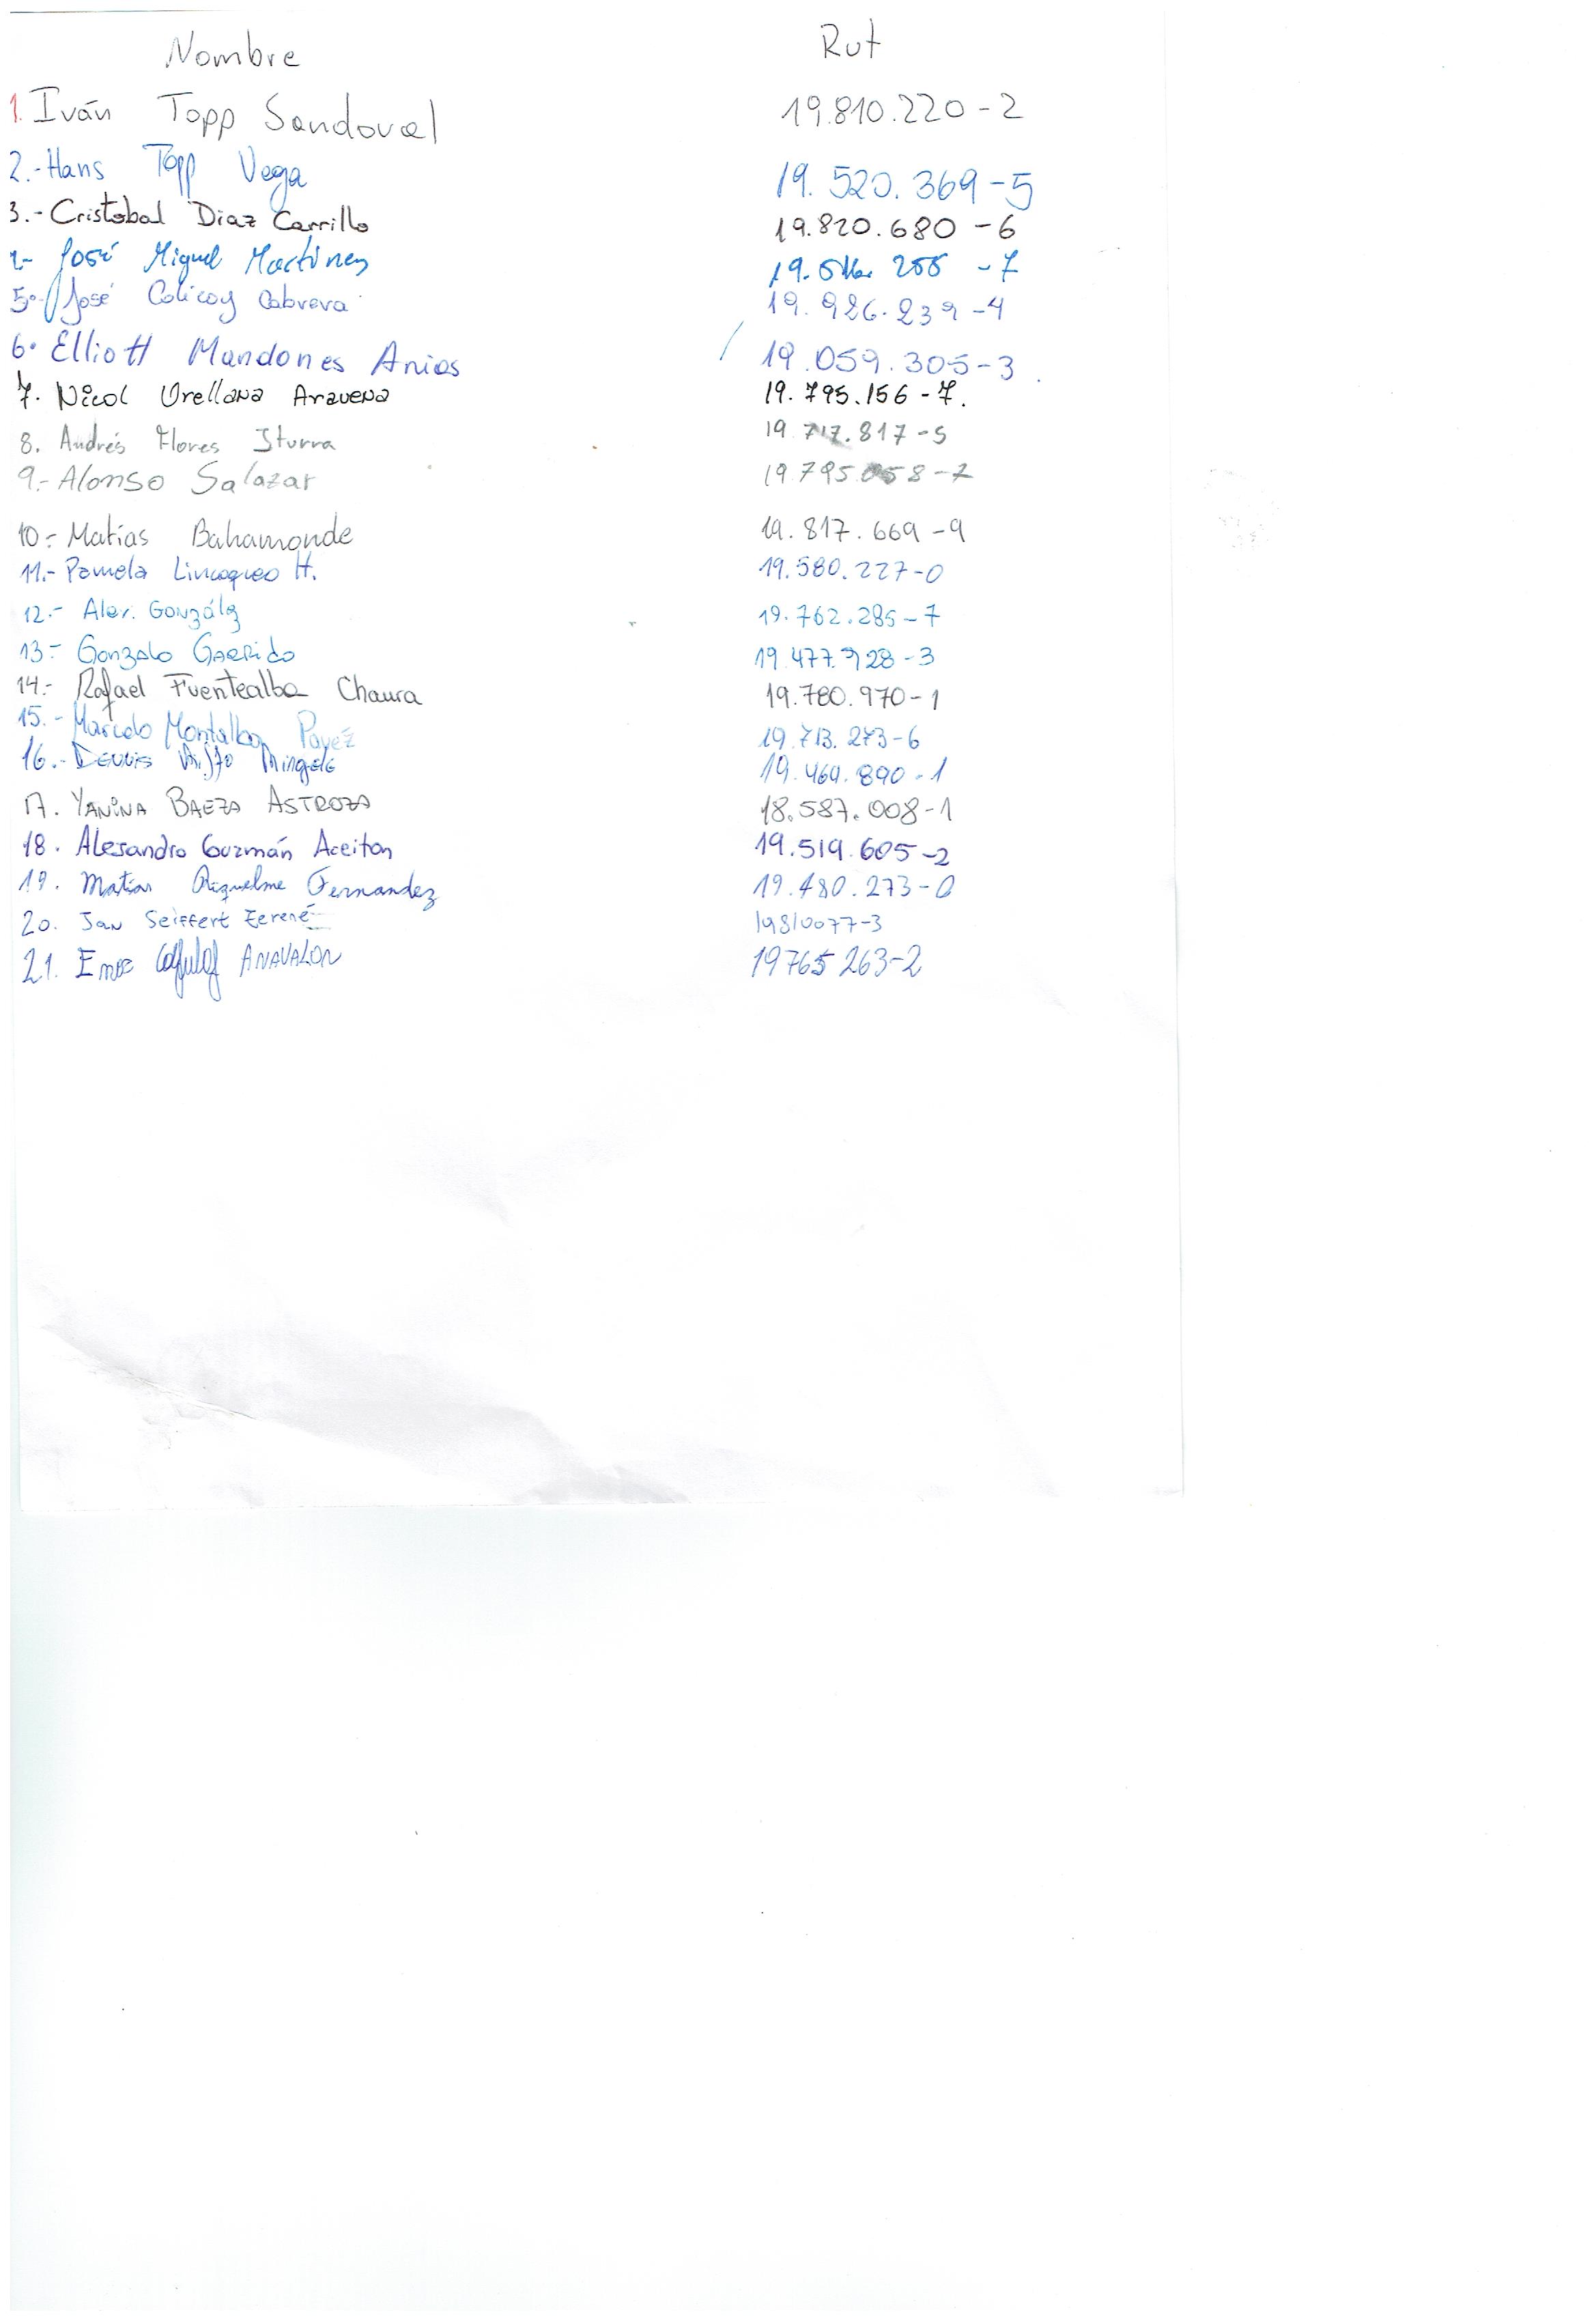 Nombre Rut
1. Iván Topp Sandoval 19.810.220-2
2.- Hans Topp Vega 19.520.369-5
3.- Cristobal Diaz Carrillo 19.820.680-6
José Miguel Martínez -7
5.- José Colicoy Cabrera 19.926.239-4
6. Elliott Mandones Arias 19.059.305-3
7. Nicol Orellana Aravena 19.795.156-7.
8. Andrés Flores Iturra 19.717.817-5
9.- Alonso Salazar 19.795.058-7
10.- Matías Bahamonde 19.817.669-9
11.- Pamela Lincoqueo H. 19.580.227-0
12.- Alex. González 19.762.285-7
13.- Gonzalo Garrido 19.477.928-3
14.- Rafael Fuentealba Chaura 19.780.970-1
15.- Marcelo Montalba Pavez 19.713.273-6
16.- Dennis 19.464.890-1
17. YANINA BAEZA ASTROZA 18.587.008-1
18. Alesandro Guzmán Aceiton 19.519.605-2
19. Matías Riquelme Fernandez 19.480.273-0
20. Jan Seiffert Zerené 19810077-3
21. ANAVALON 19765263-2